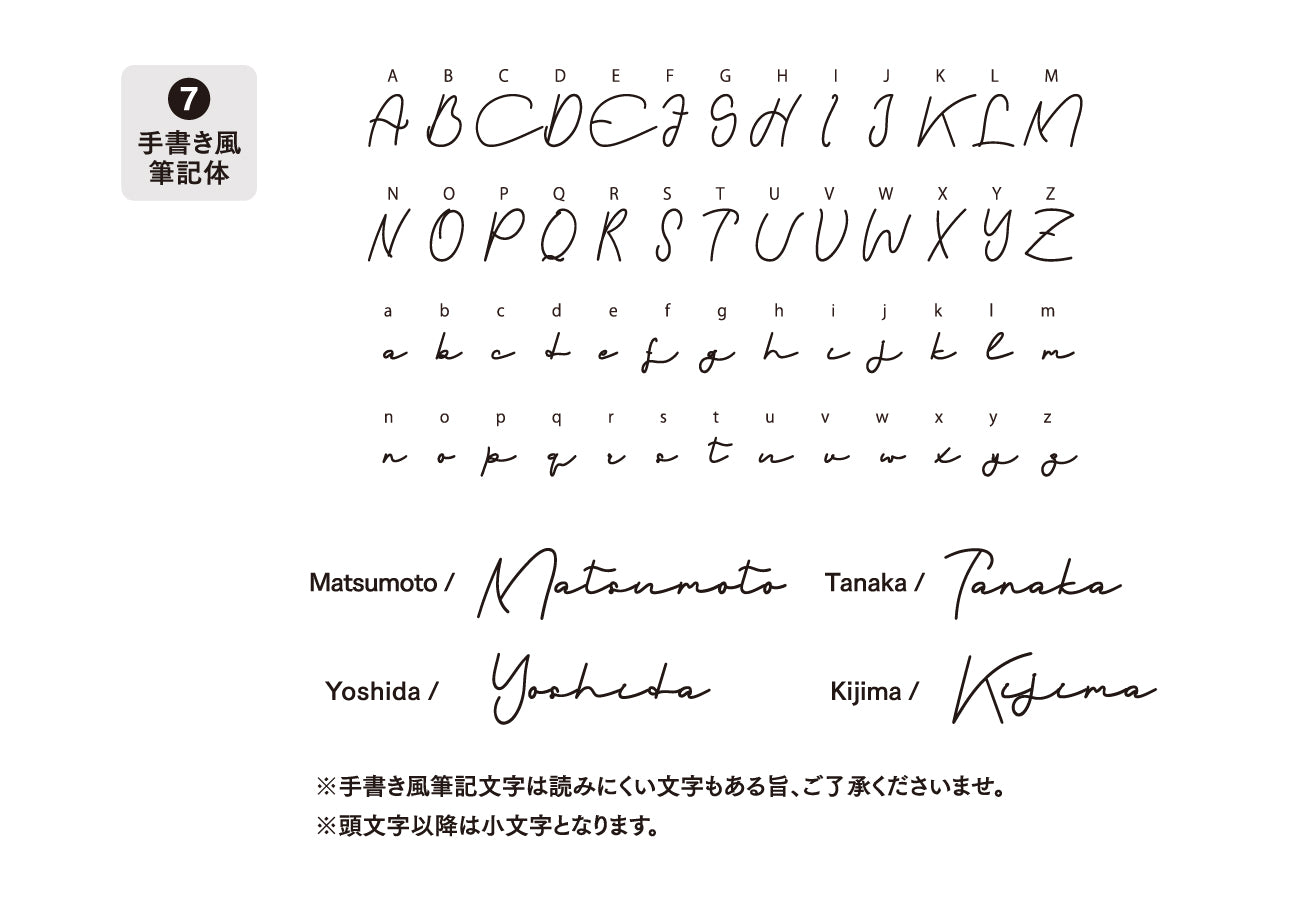 7
手書き風
筆記体
A B C D E F G H I J K L M
A B C D E F G H I J K L M
N O P Q R S T U V W X Y Z
N O P Q R S T U V W X Y Z
a b c d e f g h i j k l m
a b c d e f g h i j k l m
n o p q r s t u v w x y z
n o p q r s t u v w x y z
Matsumoto / Matsumoto Tanaka / Tanaka
Yoshida / Yoshida Kijima / Kijima
※手書き風筆記文字は読みにくい文字もある旨、ご了承くださいませ。
※頭文字以降は小文字となります。